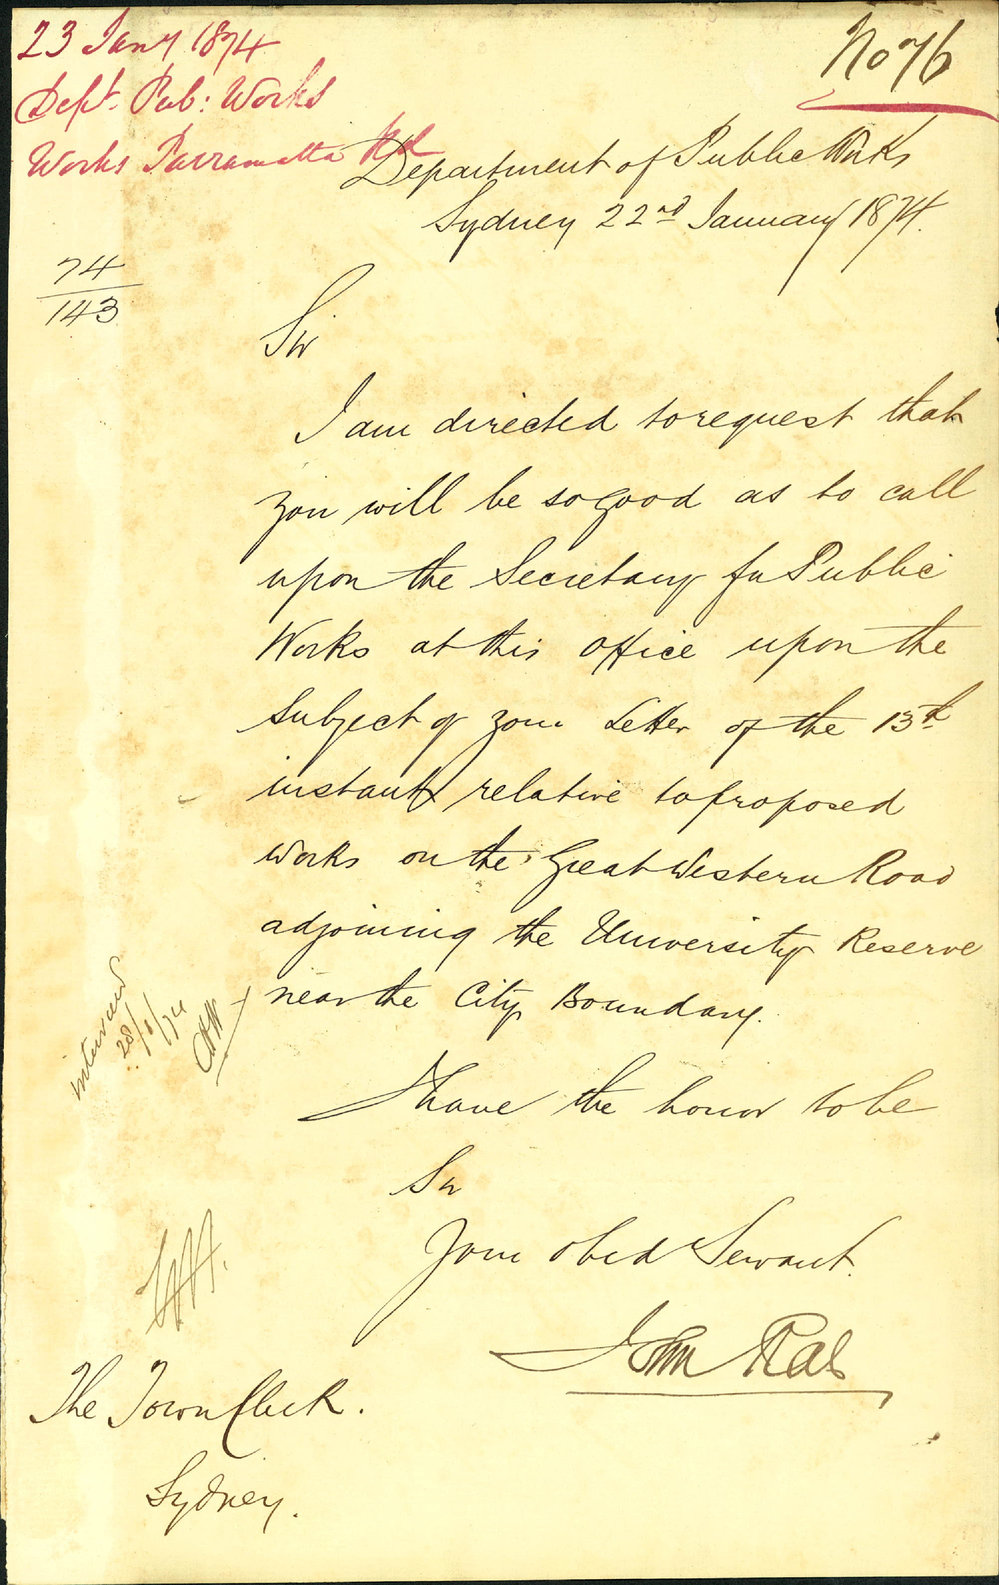 23 Jany 1874
Dept. Pub: Works
Works Parramatta Rd
No 76
Department of Public Works
Sydney 22nd January 1874.
74
143
Sir
I am directed to request that
you will be so good as to call
upon the Secretary for Public
Works at this office upon the
subject of your Letter of the 13th
instant relative to proposed
works on the Great Western Road
adjoining the University Reserve
near the City Boundary.
I have the honor to be
Sir
Your obed Servant.
John Rae
Interviewed
28/1/74
The Town Clerk.
Sydney.